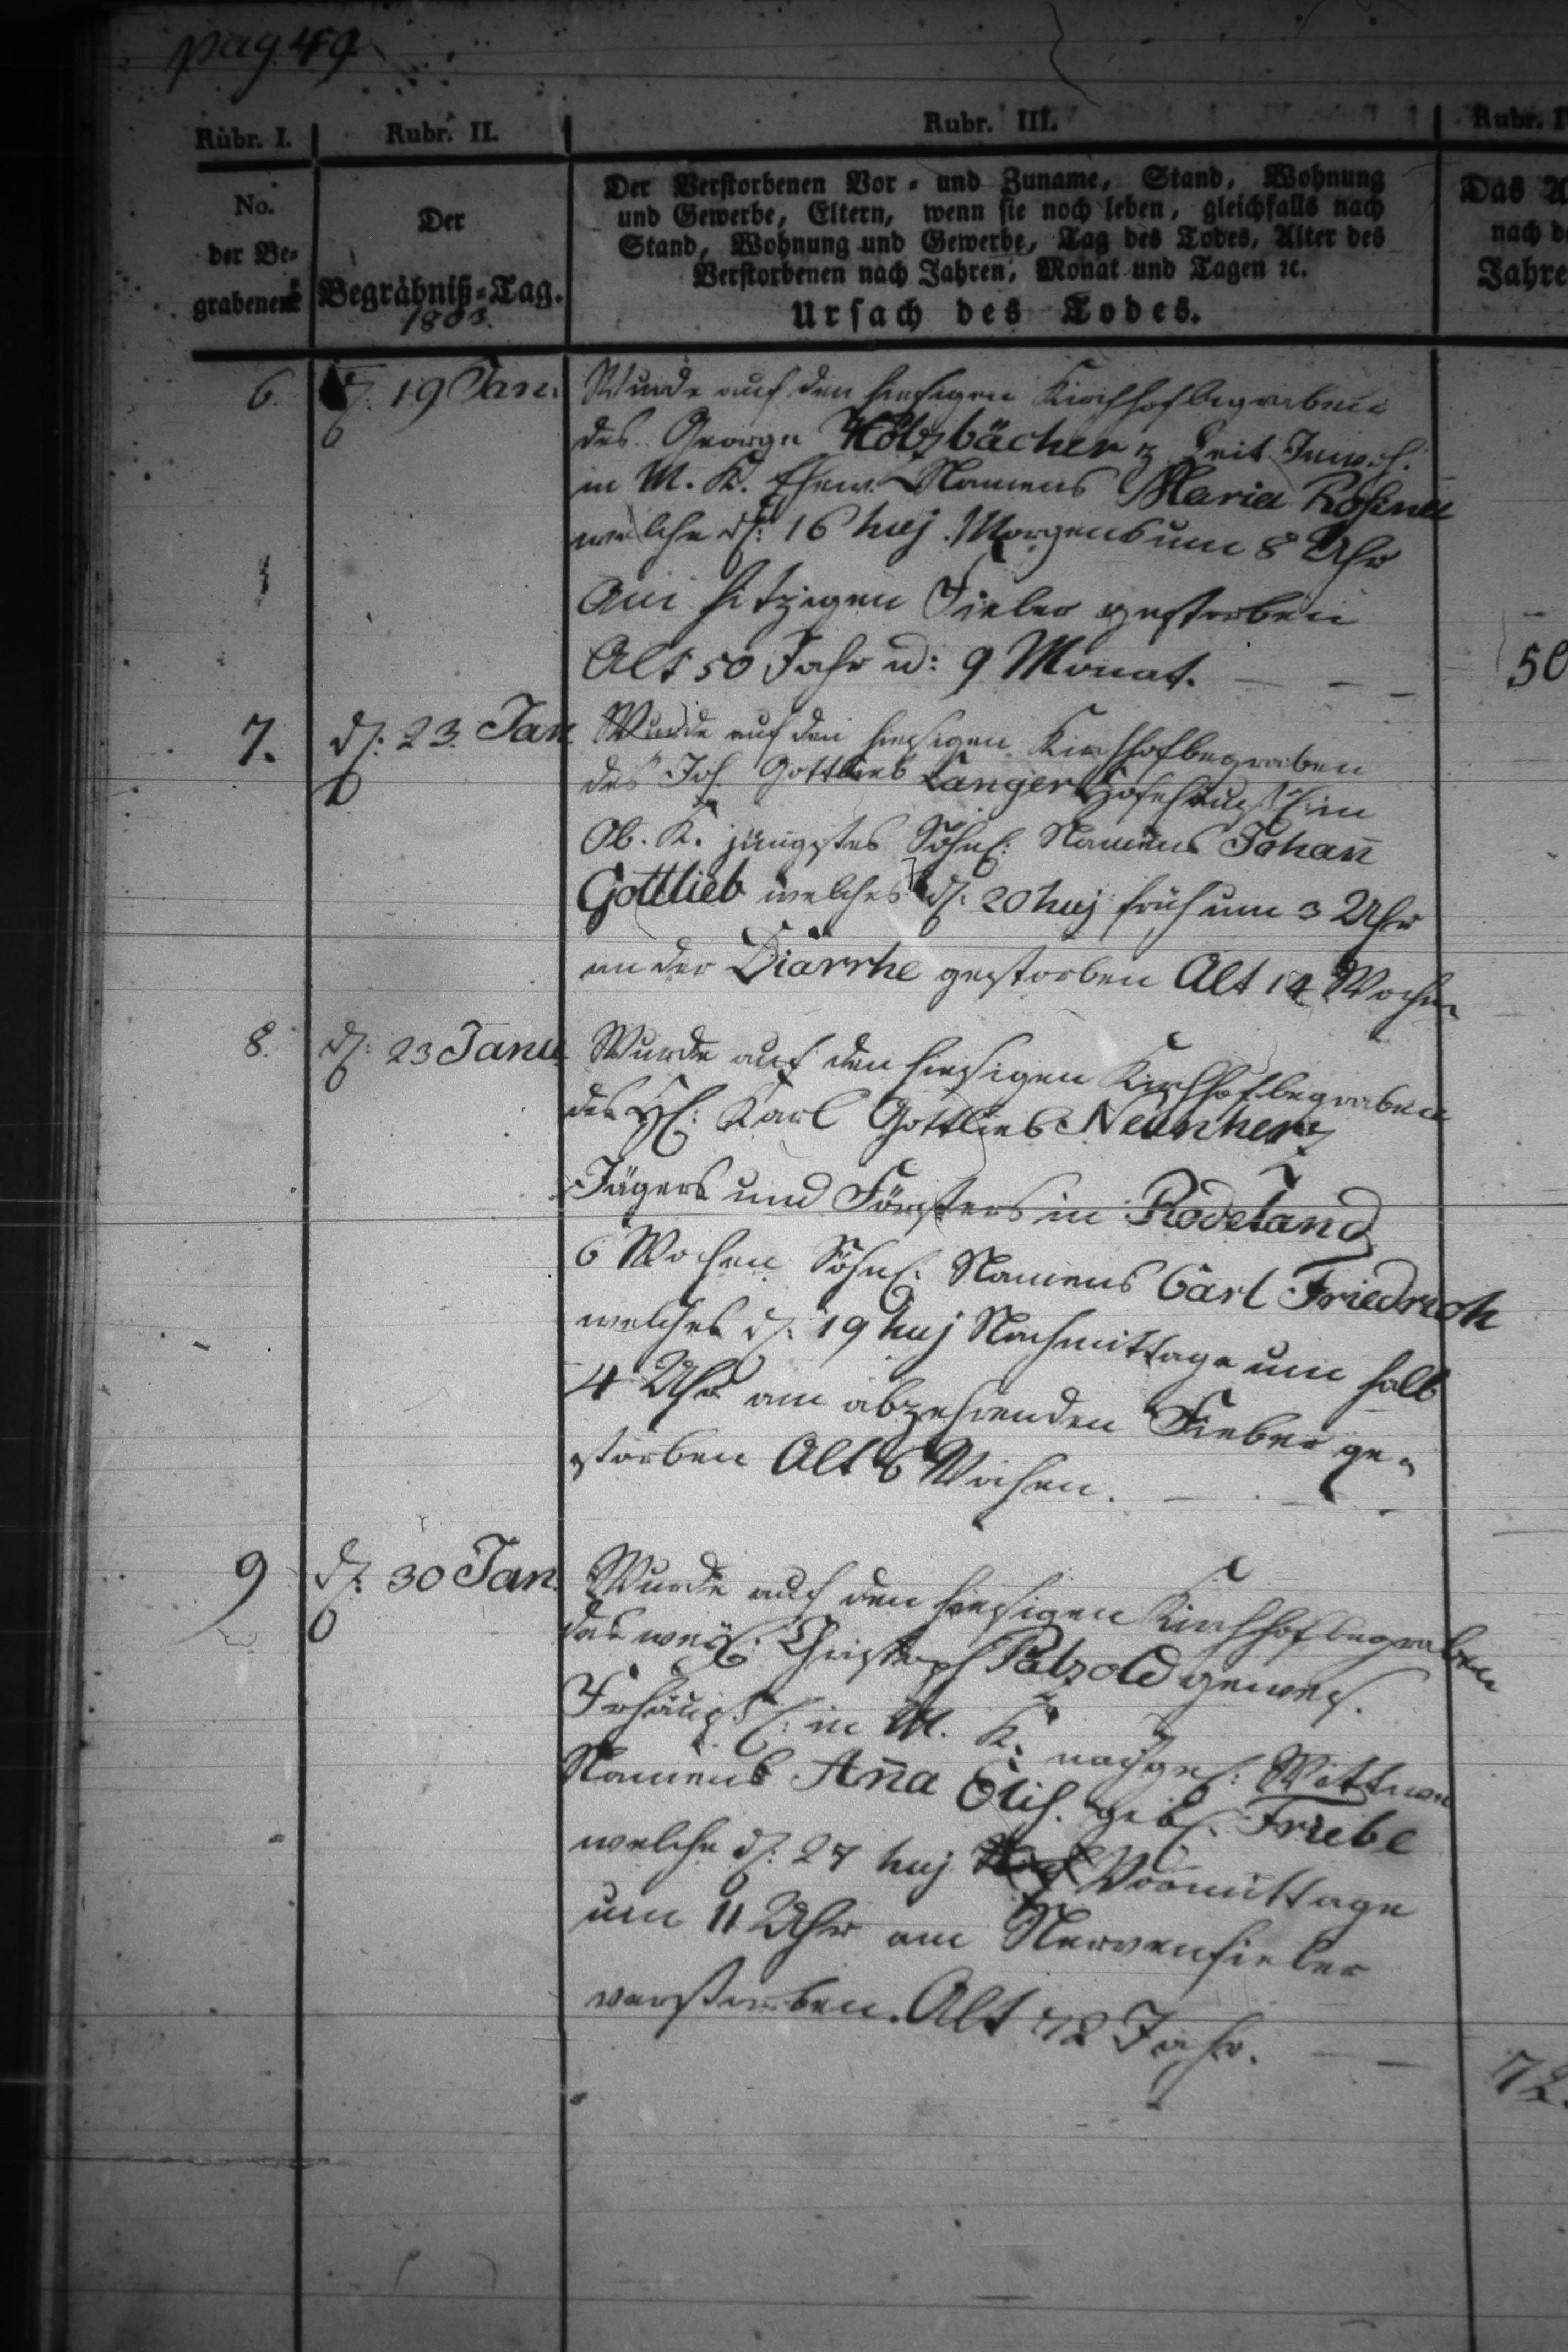 pag. 49
Rubr. I. Rubr. II. Rubr. III.
No.
der Be-
grabenen
Der
Begräbniß-Tag.
1803.
Der Verstorbenen Vor- und Zuname, Stand, Wohnung
und Gewerbe, Eltern, wenn sie noch leben, gleichfalls nach
Stand, Wohnung und Gewerbe, Tag des Todes, Alter des
Verstorbenen nach Jahren, Monat und Tagen ꝛc.
Ursach des Todes.
Das
nach
Jahre
6. d. 19 Jan. Wurde auf den hiesigen Kirchhof begraben
des George z. Zeit Inw.
in M. K. Ehew. Namens Maria Rosina
welche d. 16 huj. Morgens um 8 Uhr
am hitzigen Fieber gestorben
Alt 50 Jahr u: 9 Monat. 50
7. d. 23. Jan. Wurde auf den hiesigen Kirchhof begraben
des Joh. Gottlieb Langer in
Ob. K. jüngstes Söhnl: Namens Johañ
Gottlieb welches d. 20 huj früh um 3 Uhr
an der Diarrhe gestorben Alt 14 Wochen
8. d. 23 Janu. Wurde auf den hiesigen Kirchhof begraben
des H: Karl Gottlieb Neunherz
Jägers und Försters in Rodeland
6 Wochen Söhnl. Namens Carl Friedrich
welches d. 19 huj Nachmittage um halb
4 Uhr am abzehrenden Fieber ge-
storben Alt 6 Wochen.
9 d. 30 Jan. Wurde auf den hiesigen Kirchhof begraben
des weil: Christoph Pätzold gewes.
in M. K. nachgel: Wittwe
Namens Aña Elis. geb. Friebe
welche d. 27 huj Vormittage
um 11 Uhr am Nervenfieber
verstorben. Alt 72 Jahr. 72.